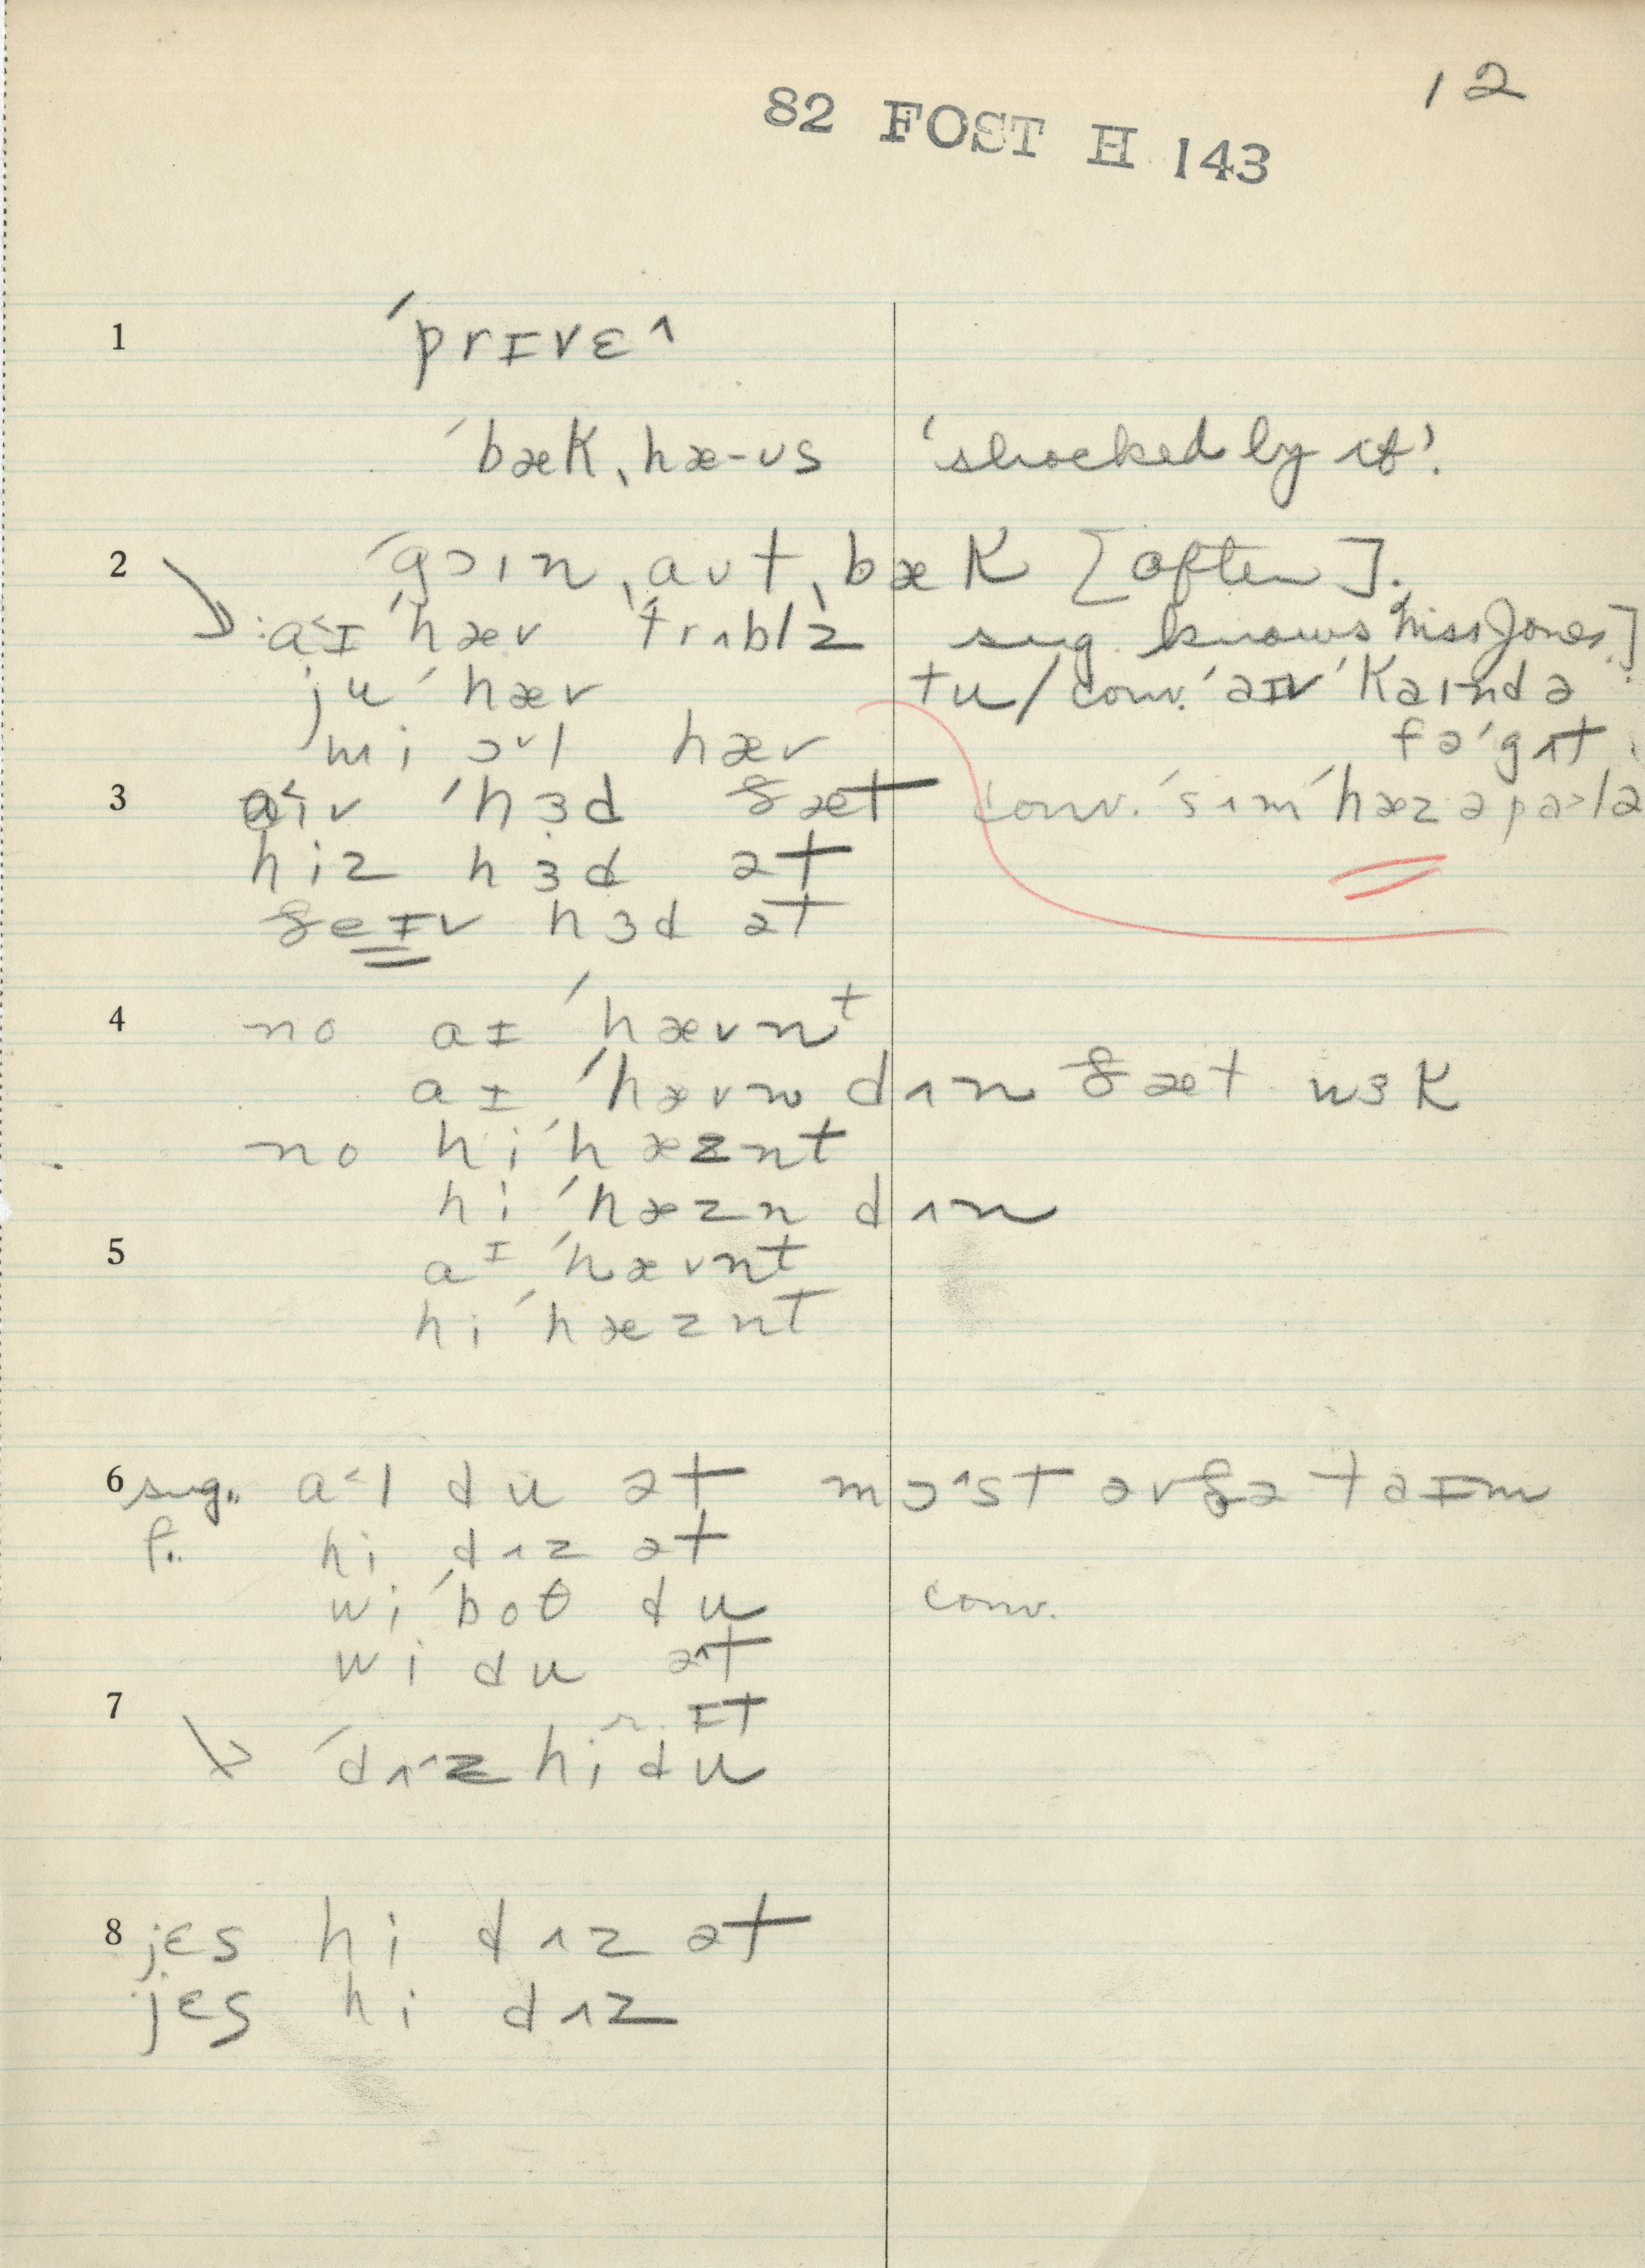 12
82 FOST H 143
1 ˈprɪvɛ^
ˈbæk ˌhæ-ʊs 'shocked by it'.
2 ˈgɔɪn ˌaʊt ˌbæk [often].
a˂ɪ ˈhæv ˈtrʌblz sug. knows Miss Jones]
ju ˈhæv tu / conv. ˈaɪv ˈkaɪnda
wi ɔ˅l hæv fəˈgɪt
3 a˂ɪv ˈhɜd ðæt conv. ˈsʌm ˈhæz
hiz hɜd ət
ðeɪv hɜd ət
4 no aɪ ˈhævnt
aɪ ˈhævn dʌn ðæt wɜk
no hi ˈhæznt
hi ˈhæzn dʌn
5 aɪ ˈhævnt
hi ˈhæznt
6 sug. a˂l du ət mɔ^st əv ðə taɪm
f. hi dʌz ət
wi ˈboθ du conv.
wi du ət
ɪt
7 ˈdʌz hi du
8 jɛs hi dʌz ət
jɛs hi dʌz